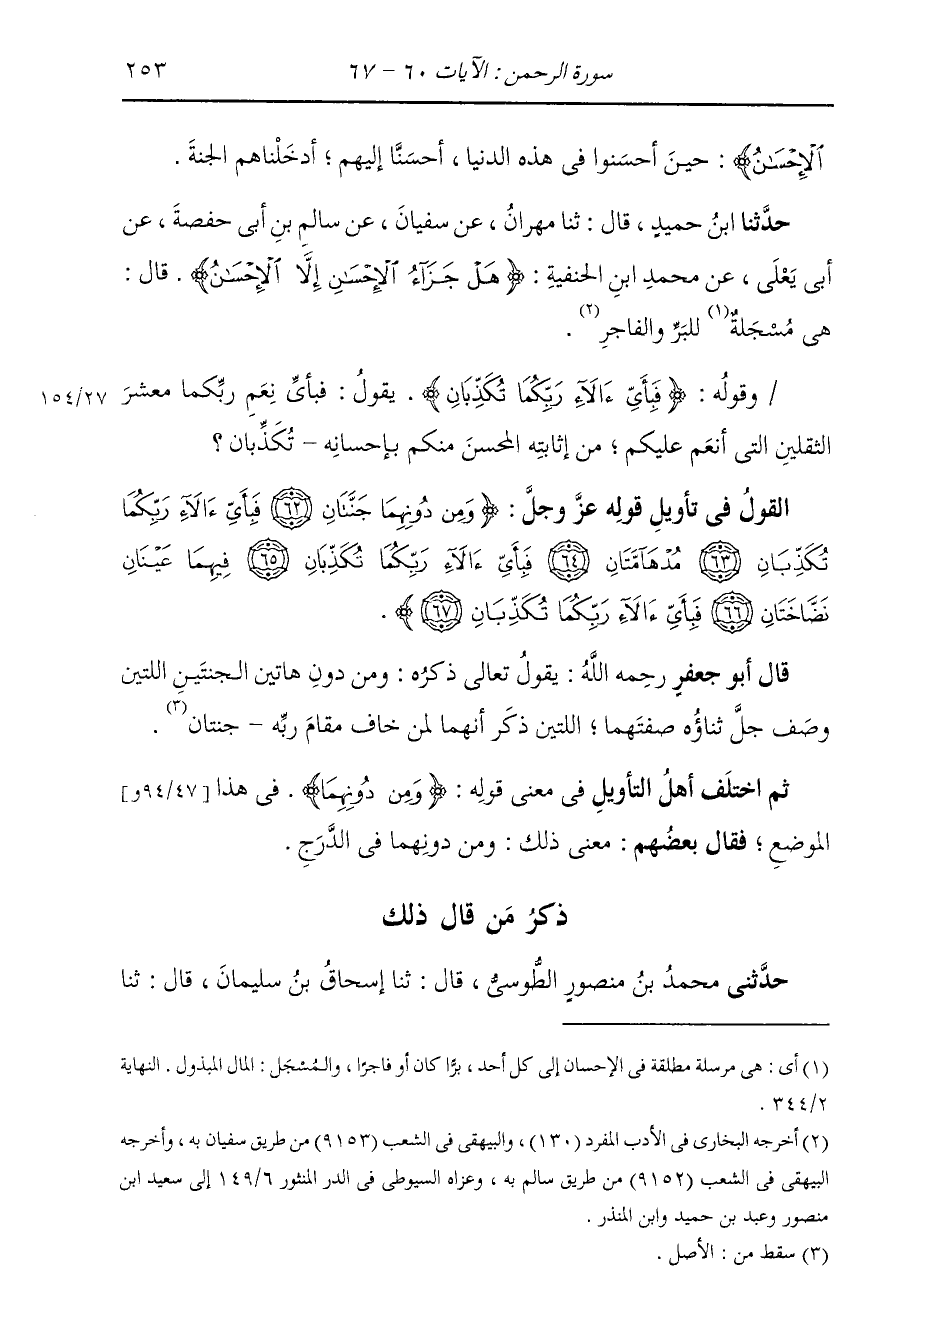 سورة الرحمن : الآيات ٦٠ - ٦٧ ٢٥٣
ٱلْإِحْسَٰنُ﴾ : حينَ أحسَنوا فى هذه الدنيا ، أحسَنَّا إليهم ؛ أدخَلْناهم الجنةَ .
حدَّثنا ابنُ حميدٍ ، قال : ثنا مهرانُ ، عن سفيانَ ، عن سالمِ بنِ أبى حفصةَ ، عن
أبى يَعْلَى ، عن محمدِ ابنِ الحنفيةِ : ﴿ هَلْ جَزَآءُ ٱلْإِحْسَٰنِ إِلَّا ٱلْإِحْسَٰنُ﴾ . قال :
هى مُسْجَلةٌ(١) للبَرِّ والفاجرِ(٢) .
/ وقولُه : ﴿ فَبِأَيِّ ءَالَآءِ رَبِّكُمَا تُكَذِّبَانِ ﴾ . يقولُ : فبأىِّ نِعَمِ ربِّكما معشرَ ١٥٤/٢٧
الثقلينِ التى أنعَم عليكم ؛ من إثابتِه المحسنَ منكم بإحسانِه - تُكَذِّبان ؟
القولُ فى تأويلِ قولِه عزَّ وجلَّ : ﴿ وَمِن دُونِهِمَا جَنَّتَانِ ٦٢ فَبِأَيِّ ءَالَآءِ رَبِّكُمَا
تُكَذِّبَانِ ٦٣ مُدْهَآمَّتَانِ ٦٤ فَبِأَيِّ ءَالَآءِ رَبِّكُمَا تُكَذِّبَانِ ٦٥ فِيهِمَا عَيْنَانِ
نَضَّاخَتَانِ ٦٦ فَبِأَيِّ ءَالَآءِ رَبِّكُمَا تُكَذِّبَانِ ٦٧ ﴾ .
قال أبو جعفرٍ رحِمه اللَّهُ : يقولُ تعالى ذكرُه : ومن دونِ هاتين الجنتَينِ اللتين
وصَف جلَّ ثناؤُه صفتَهما ؛ اللتين ذكَر أنهما لمن خاف مقامَ ربِّه - جنتان(٣) .
ثم اختلَف أهلُ التأويلِ فى معنى قولِه : ﴿ وَمِن دُونِهِمَا﴾ . فى هذا [٩٤/٤٧و]
الموضعِ ؛ فقال بعضُهم : معنى ذلك : ومن دونِهما فى الدَّرَجِ .
ذكرُ مَن قال ذلك
حدَّثنى محمدُ بنُ منصورٍ الطُّوسىُّ ، قال : ثنا إسحاقُ بنُ سليمانَ ، قال : ثنا
(١) أى : هى مرسلة مطلقة فى الإحسان إلى كل أحد ، برًّا كان أو فاجرًا ، والمُسْجَل : المال المبذول . النهاية
٣٤٤/٢ .
(٢) أخرجه البخارى فى الأدب المفرد (١٣٠) ، والبيهقى فى الشعب (٩١٥٣) من طريق سفيان به ، وأخرجه
البيهقى فى الشعب (٩١٥٢) من طريق سالم به ، وعزاه السيوطى فى الدر المنثور ١٤٩/٦ إلى سعيد ابن
منصور وعبد بن حميد وابن المنذر .
(٣) سقط من : الأصل .